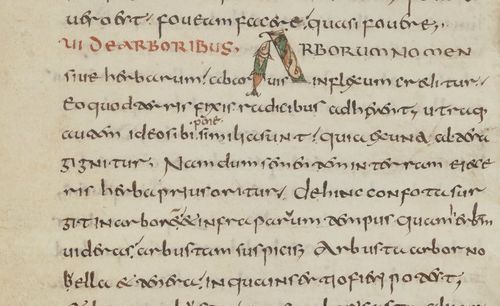 foueam facere, quasi fouere,
UI DE ARBORIBUS, ARBORUM NOMEN
siue herbarum, ab aruis inflexum creditur,
Eo quod terris fixis radicibus adherent, utraq
autem ideo sibi pene similia sunt, quia ex uno alterū
gignitur, Nam dum sementem in terram iece
ris herba prius oritur, dehinc confota sur
git in arborē & infra paruum tempus quam herbam
uideras, arbustam suspicis, Arbusta arbor no
uella & tenera, in qua insertio fieri potest,